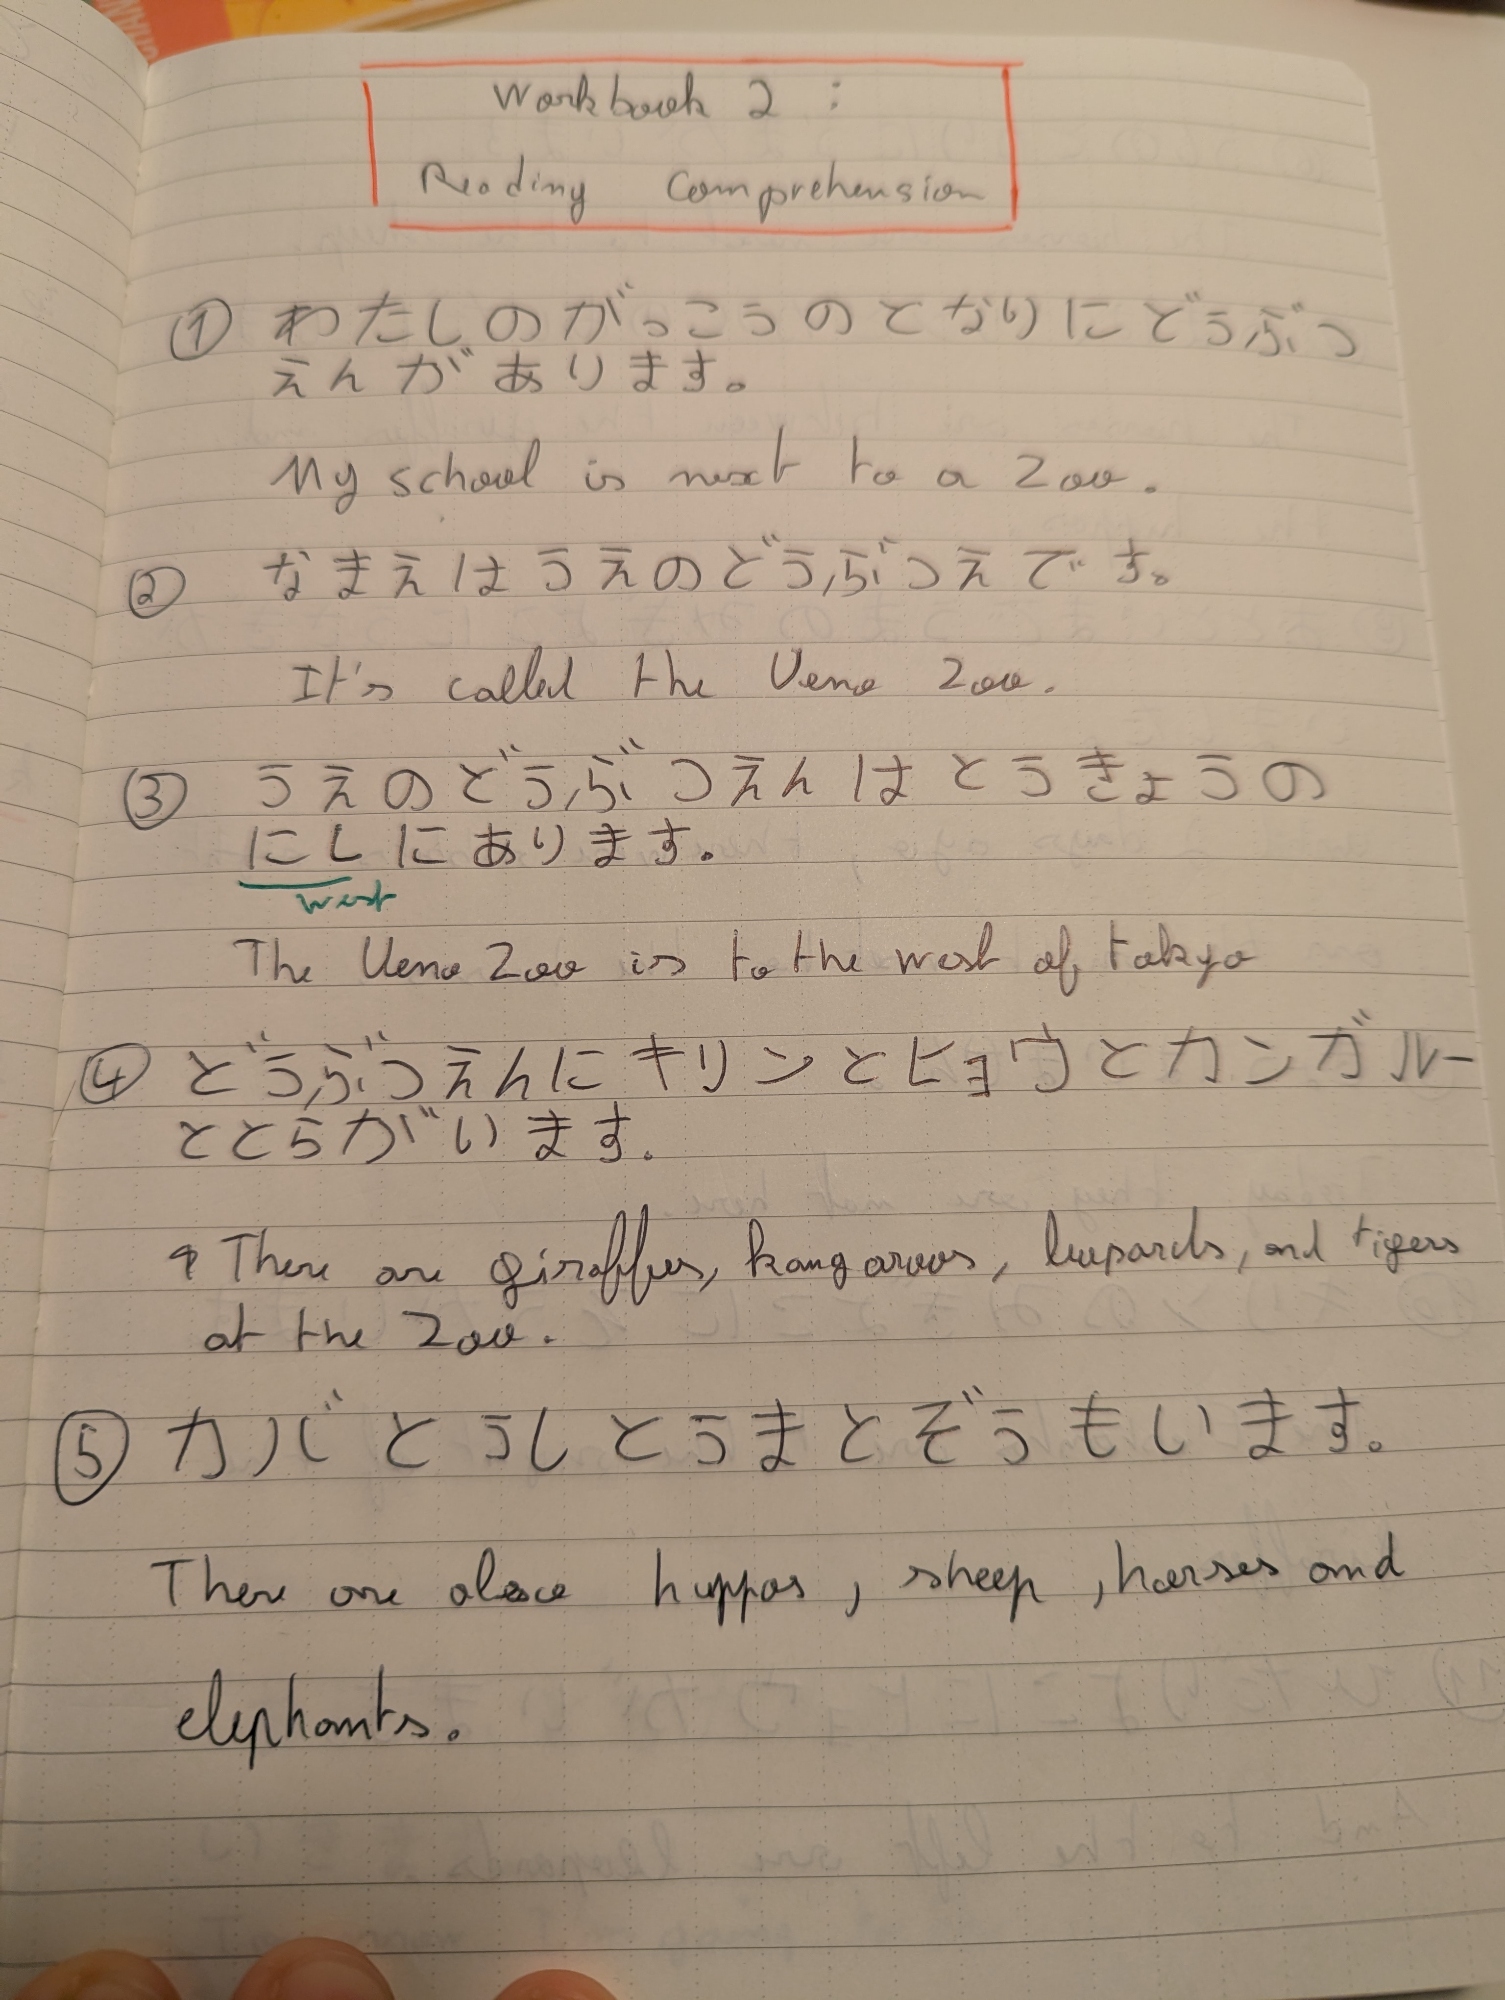 Workbook 2 :
Reading Comprehension
① わたしのがっこうのとなりにどうぶつ
えんがあります。
My school is next to a Zoo.
② なまえはうえのどうぶつえです。
It's called the Ueno Zoo.
③ うえのどうぶつえんはとうきょうの
にしにあります。
west
The Ueno Zoo is to the west of tokyo
④ どうぶつえんにキリンとヒョウとカンガルー
ととらがいます。
There are giraffes, kangaroos, leopards, and tigers
at the Zoo.
⑤ カバとうしとうまとぞうもいます。
There are also hippos, sheep, horses and
elephants.